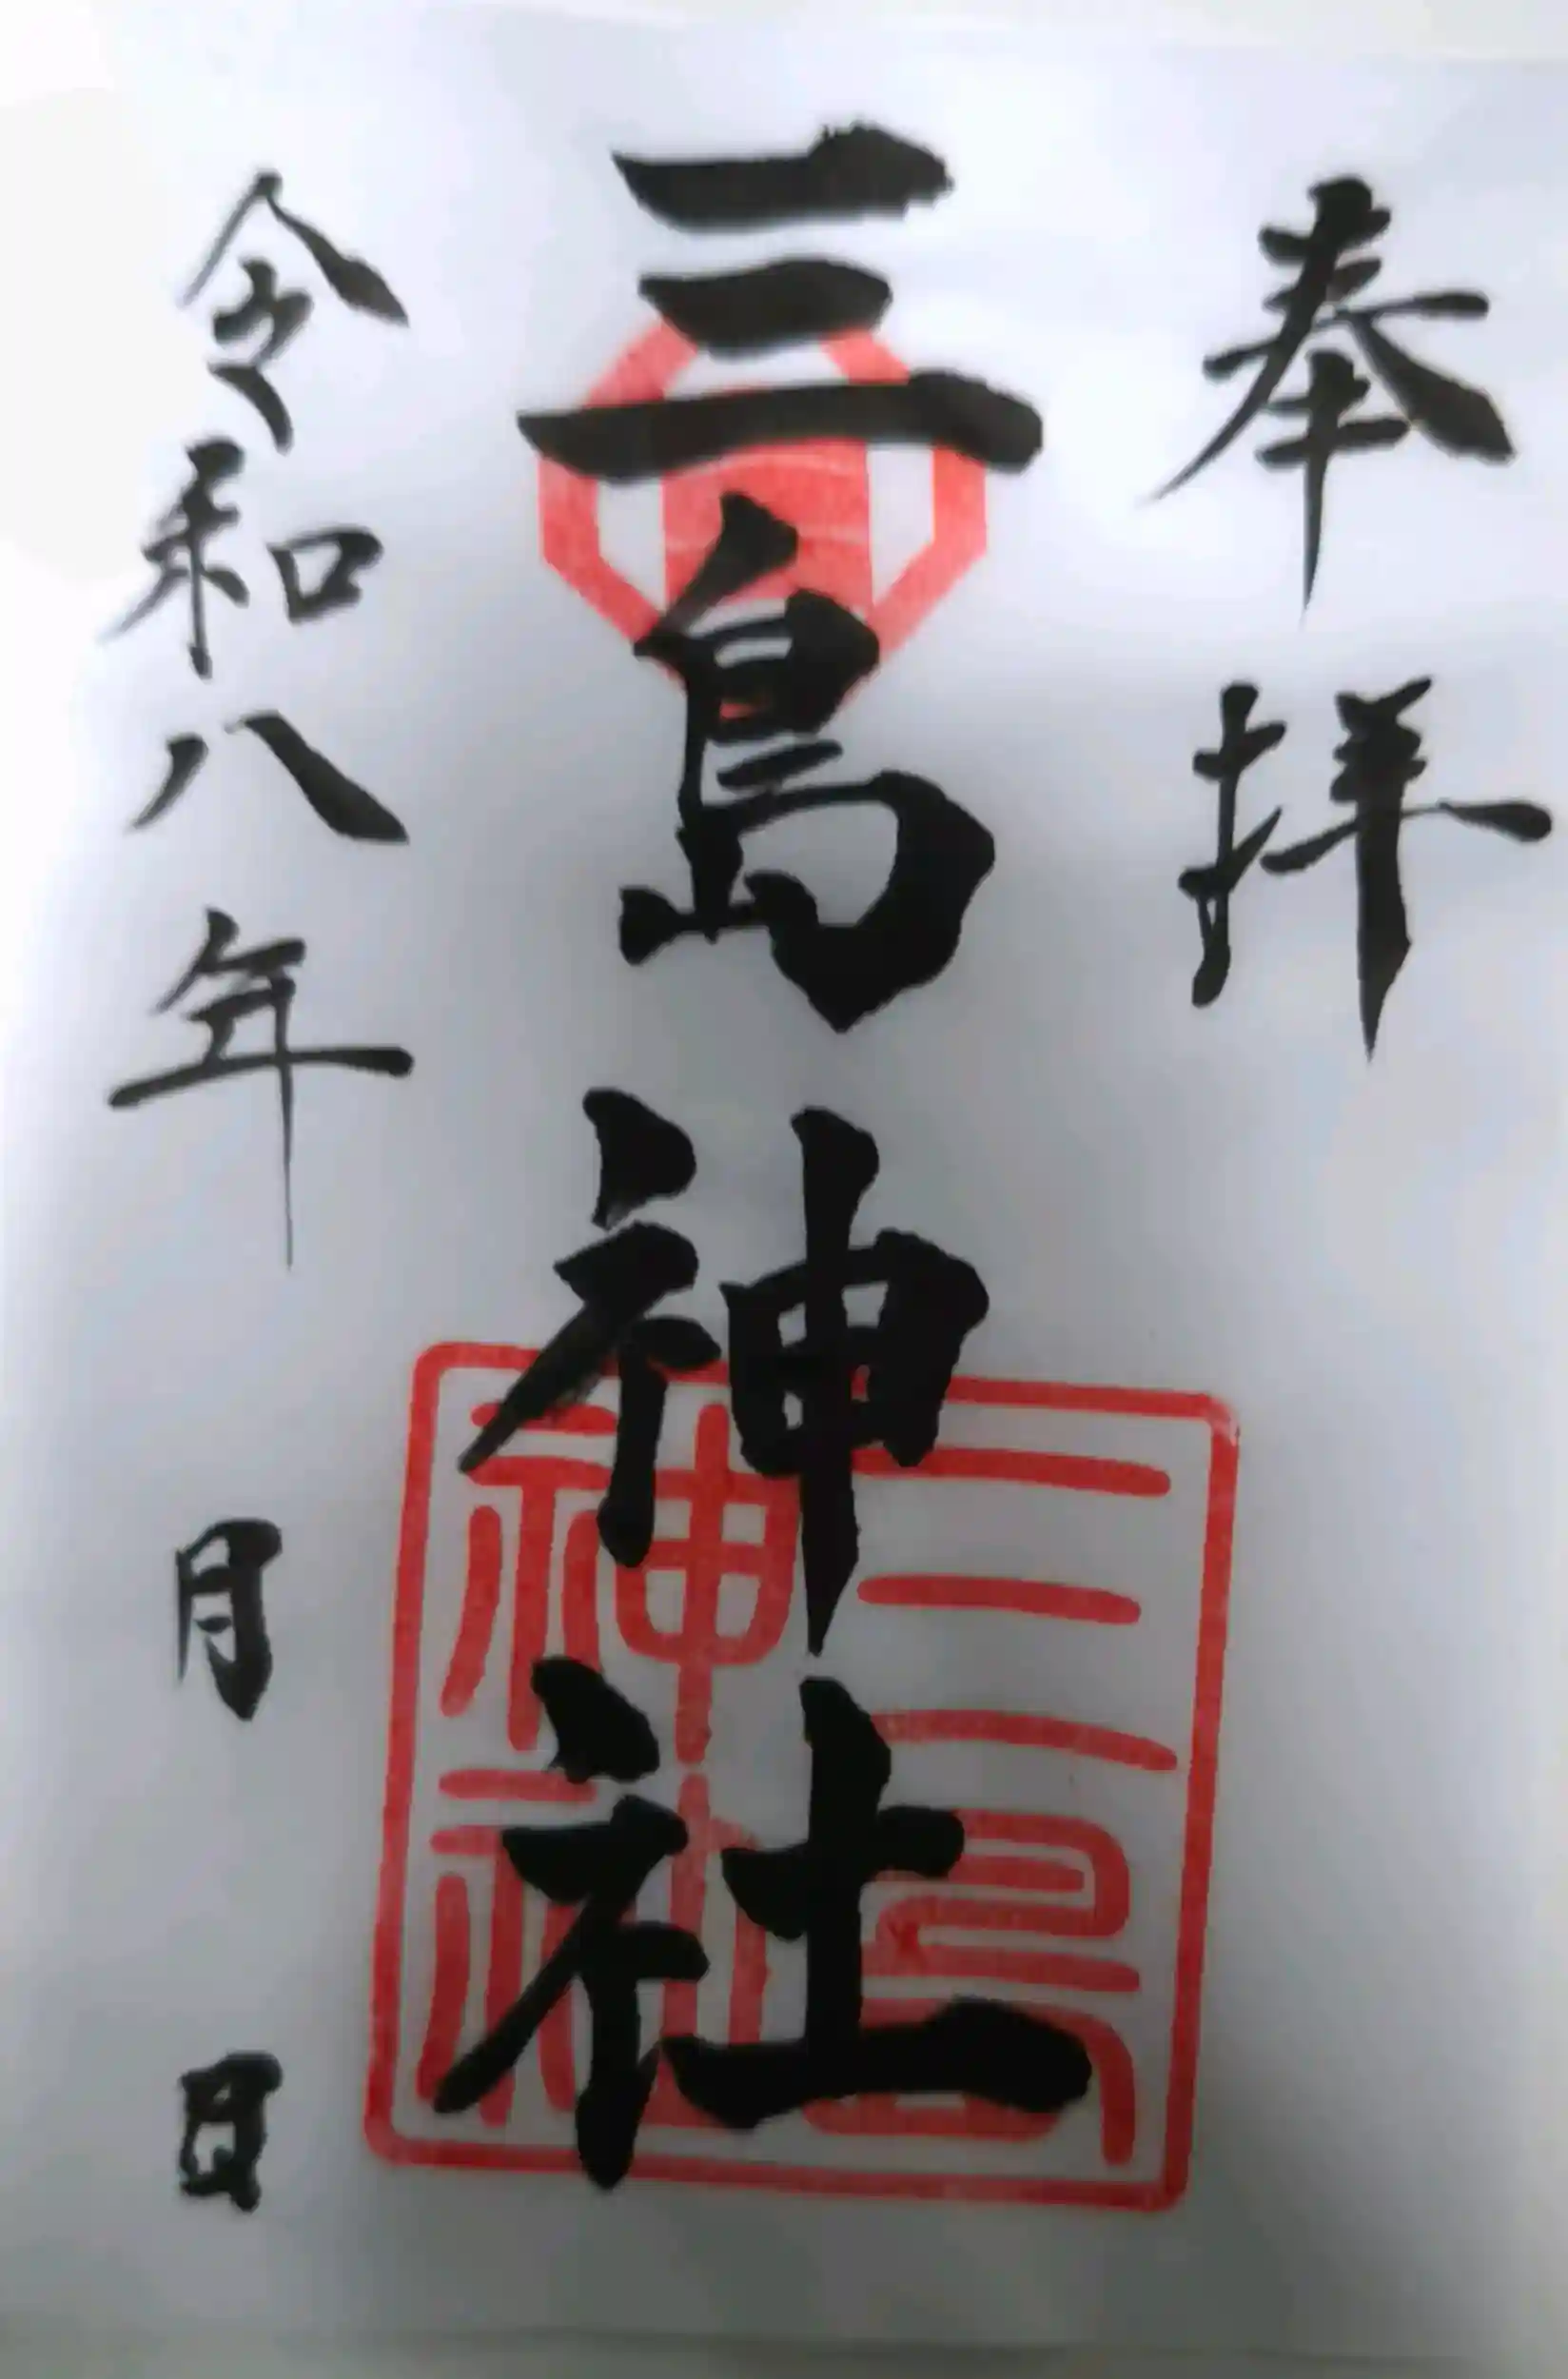 奉拝
三島神社
令和八年 月 日
三島
神社